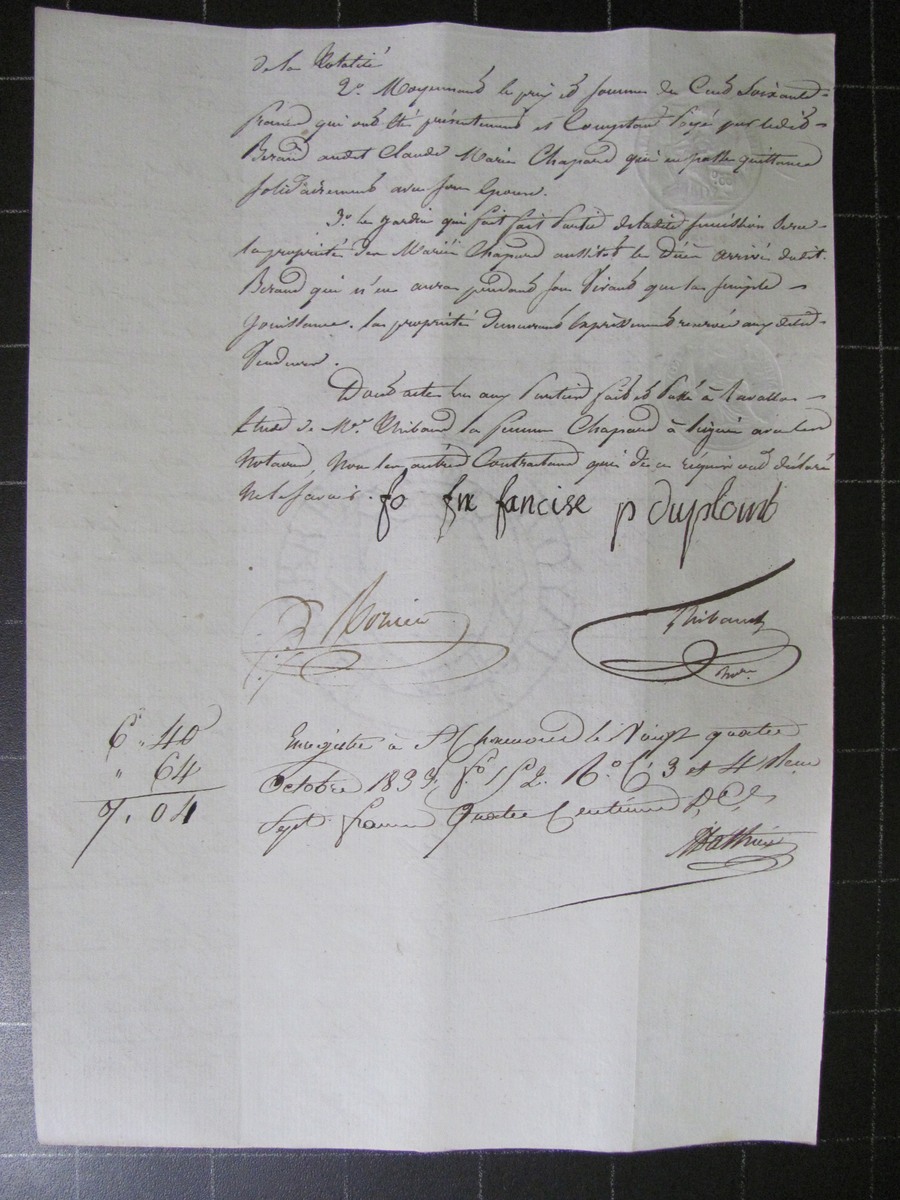 de la totalité
2º Moyennant le prix et somme de Cent Soixante
francs qui ont été présentement et Comptant Payé par ledit
Berand audit Claude Marie Chapard qui en passe quittance
Solidairement avec son Epouse.
3º le jardin qui fait fait Partie de ladite succession sera
la propriété des Mariés Chapard aussitot le Décès arrivé dudit
Berand qui n'en aura pendant son Vivant que la simple
Jouissance. la propriété demeurant Expressément reservée aux dits
Vendeurs.
Dont acte lu aux Parties fait et Passé à
Etude de Me. Thibaud la femme Chapard à signé avec les
Notaires, Non les autres Contractants qui de ce requis ont déclaré
ne le Savoir. fo fne fancise p duplomb
Thibaud
Nre
6 " 40
" 64
7 . 04
Enregistré à St Chamond le Vingt quatre
Octobre 1833, fo 152. Ro C. 3 et 4 Reçu
Sept francs Quatre Centimes D. C.
Mathieu